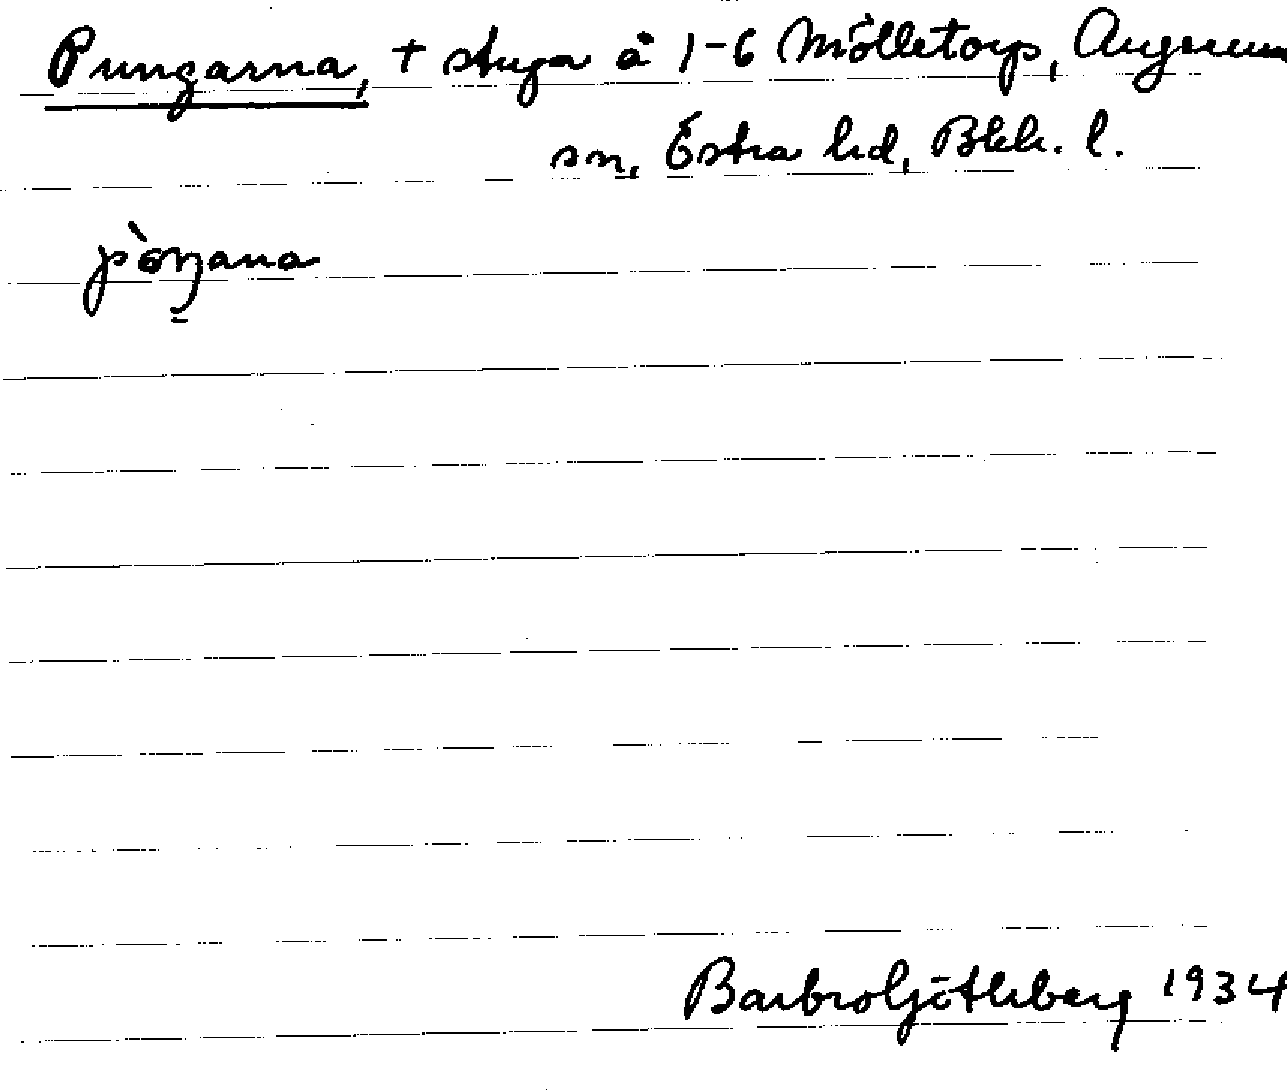 Pungarna, + stuga å 1-6 Mölletorp, Augerum
sn, Östra hd, Blek. l.
pòŋana
Barbro Götleberg 1934